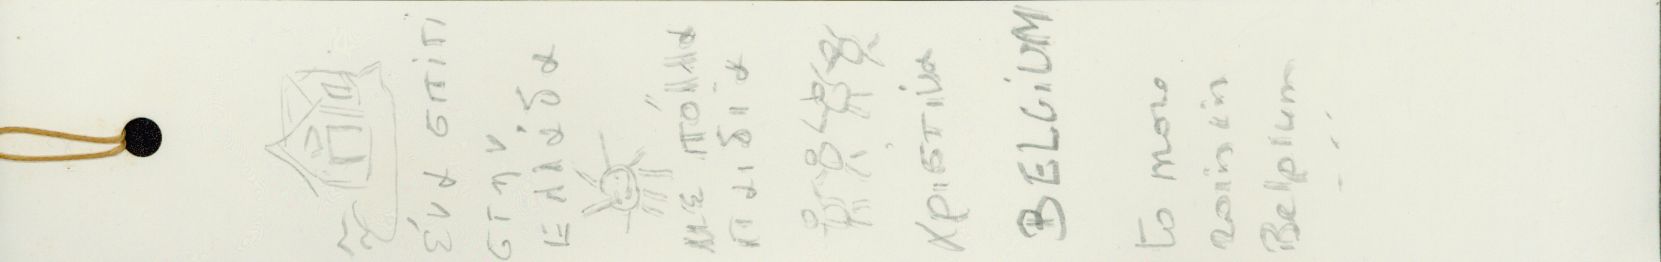 ένα σπίτι
στην
Ελλάδα
με πόλλα
παιδιά
Χριστίνα
BELGiUM
to more
rain in
Belgium
...